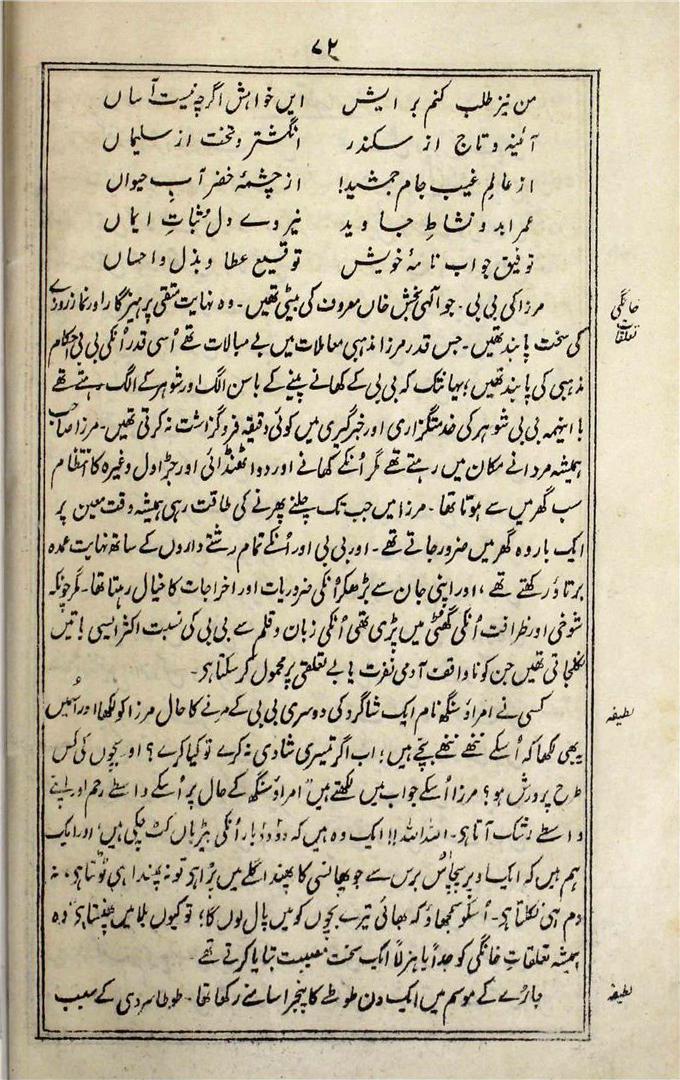 ۷۲
من نیز طلب کنم برایش ایں خواہش اگرچہ نیست آساں
آئینہ و تاج از سکندر انگشتر و تخت از سلیماں
از عالمِ غیب جام جمشید! از چشمۂ خضر آبِ حیواں
عمر ابد و نشاطِ جاوید نیروے دل و ثباتِ ایماں
توفیق جواب نامۂ خویش توقیع عطا و بذل و احساں
خانگی تعلقات
مرزا کی بی بی۔ جو الٰہی بخش خاں معروف کی بیٹی تھیں۔ وہ نہایت متقی پرہیزگار اور نماز روزے
کی سخت پابند تھیں۔ جس قدر مرزا مذہبی معاملات میں بے مبالات تھے اُسی قدر اُنکی بی بی احکام
مذہبی کی پابند تھیں؛ یہانتک کہ بی بی کے کھانے پینے کے باسن الگ اور شوہر کے الگ رہتے تھے
باانیہمہ بی بی شوہر کی خدمتگزاری اور خبرگیری میں کوئی دقیقہ فروگزاشت نہ کرتی تھیں۔ مرزا صاحب
ہمیشہ مردانے مکان میں رہتے تھے مگر اُنکے کھانے اور دوا ٹھنڈائی اور جڑاول وغیرہ کا انتظام
سب گھر میں سے ہوتا تھا۔ مرزا میں جب تک چلنے پھرنے کی طاقت رہی ہمیشہ وقت معین پر
ایک بار وہ گھر میں ضرور جاتے تھے۔ اور بی بی اور اُنکے تمام رشتے داروں کے ساتھ نہایت عمدہ
برتاؤ رکھتے تھے، اور اپنی جان سے بڑھکر اُنکی ضروریات اور اخراجات کا خیال رہتا تھا۔ مگر چونکہ
شوخی اور ظرافت اُنکی گھٹی میں پڑی تھی اُنکی زبان و قلم سے بی بی کی نسبت اکثر ایسی باتیں
نکلجاتی تھیں جن کو ناواقف آدمی نفرت یا بے تعلقی پر محمول کر سکتا ہی۔
لطیفہ
کسی نے امراؤ سنگھ نام ایک شاگرد کی دوسری بی بی کے مرنے کا حال مرزا کو لکھا اور اُسمیں
یہ بھی لکھا کہ اُسکے ننھے ننھے بچے ہیں؛ اب اگر تیسری شادی نہ کرے تو کیا کرے؟ اور بچوں کی کس
طرح پرورش ہو؟ مرزا اُسکے جواب میں لکھتے ہیں "امراؤ سنگھ کے حال پر اُسکے واسطے رحم اور اپنے
واسطے رشک آتا ہی۔ اللہ اللہ!! ایک وہ ہیں کہ دو دو بار اُنکی بیڑیاں کٹ چکی ہیں، اور ایک
ہم ہیں کہ ایک اوپر پچاس برس سے جو پھانسی کا پھندا گلے میں پڑا ہی تو نہ پھندا ہی ٹوٹتا ہی، نہ
دم ہی نکلتا ہی۔ اُسکو سمجھاؤ کہ بھائی تیرے بچوں کو میں پال لوں گا؛ تو کیوں بلا میں پھنستا ہی" وہ
ہمیشہ تعلقاتِ خانگی کو جداً یا ہزلاً ایک سخت مصیبت بتایا کرتے تھے۔
لطیفہ
جاڑے کے موسم میں ایک دن طوطے کا پنجرا سامنے رکھا تھا۔ طوطا سردی کے سبب